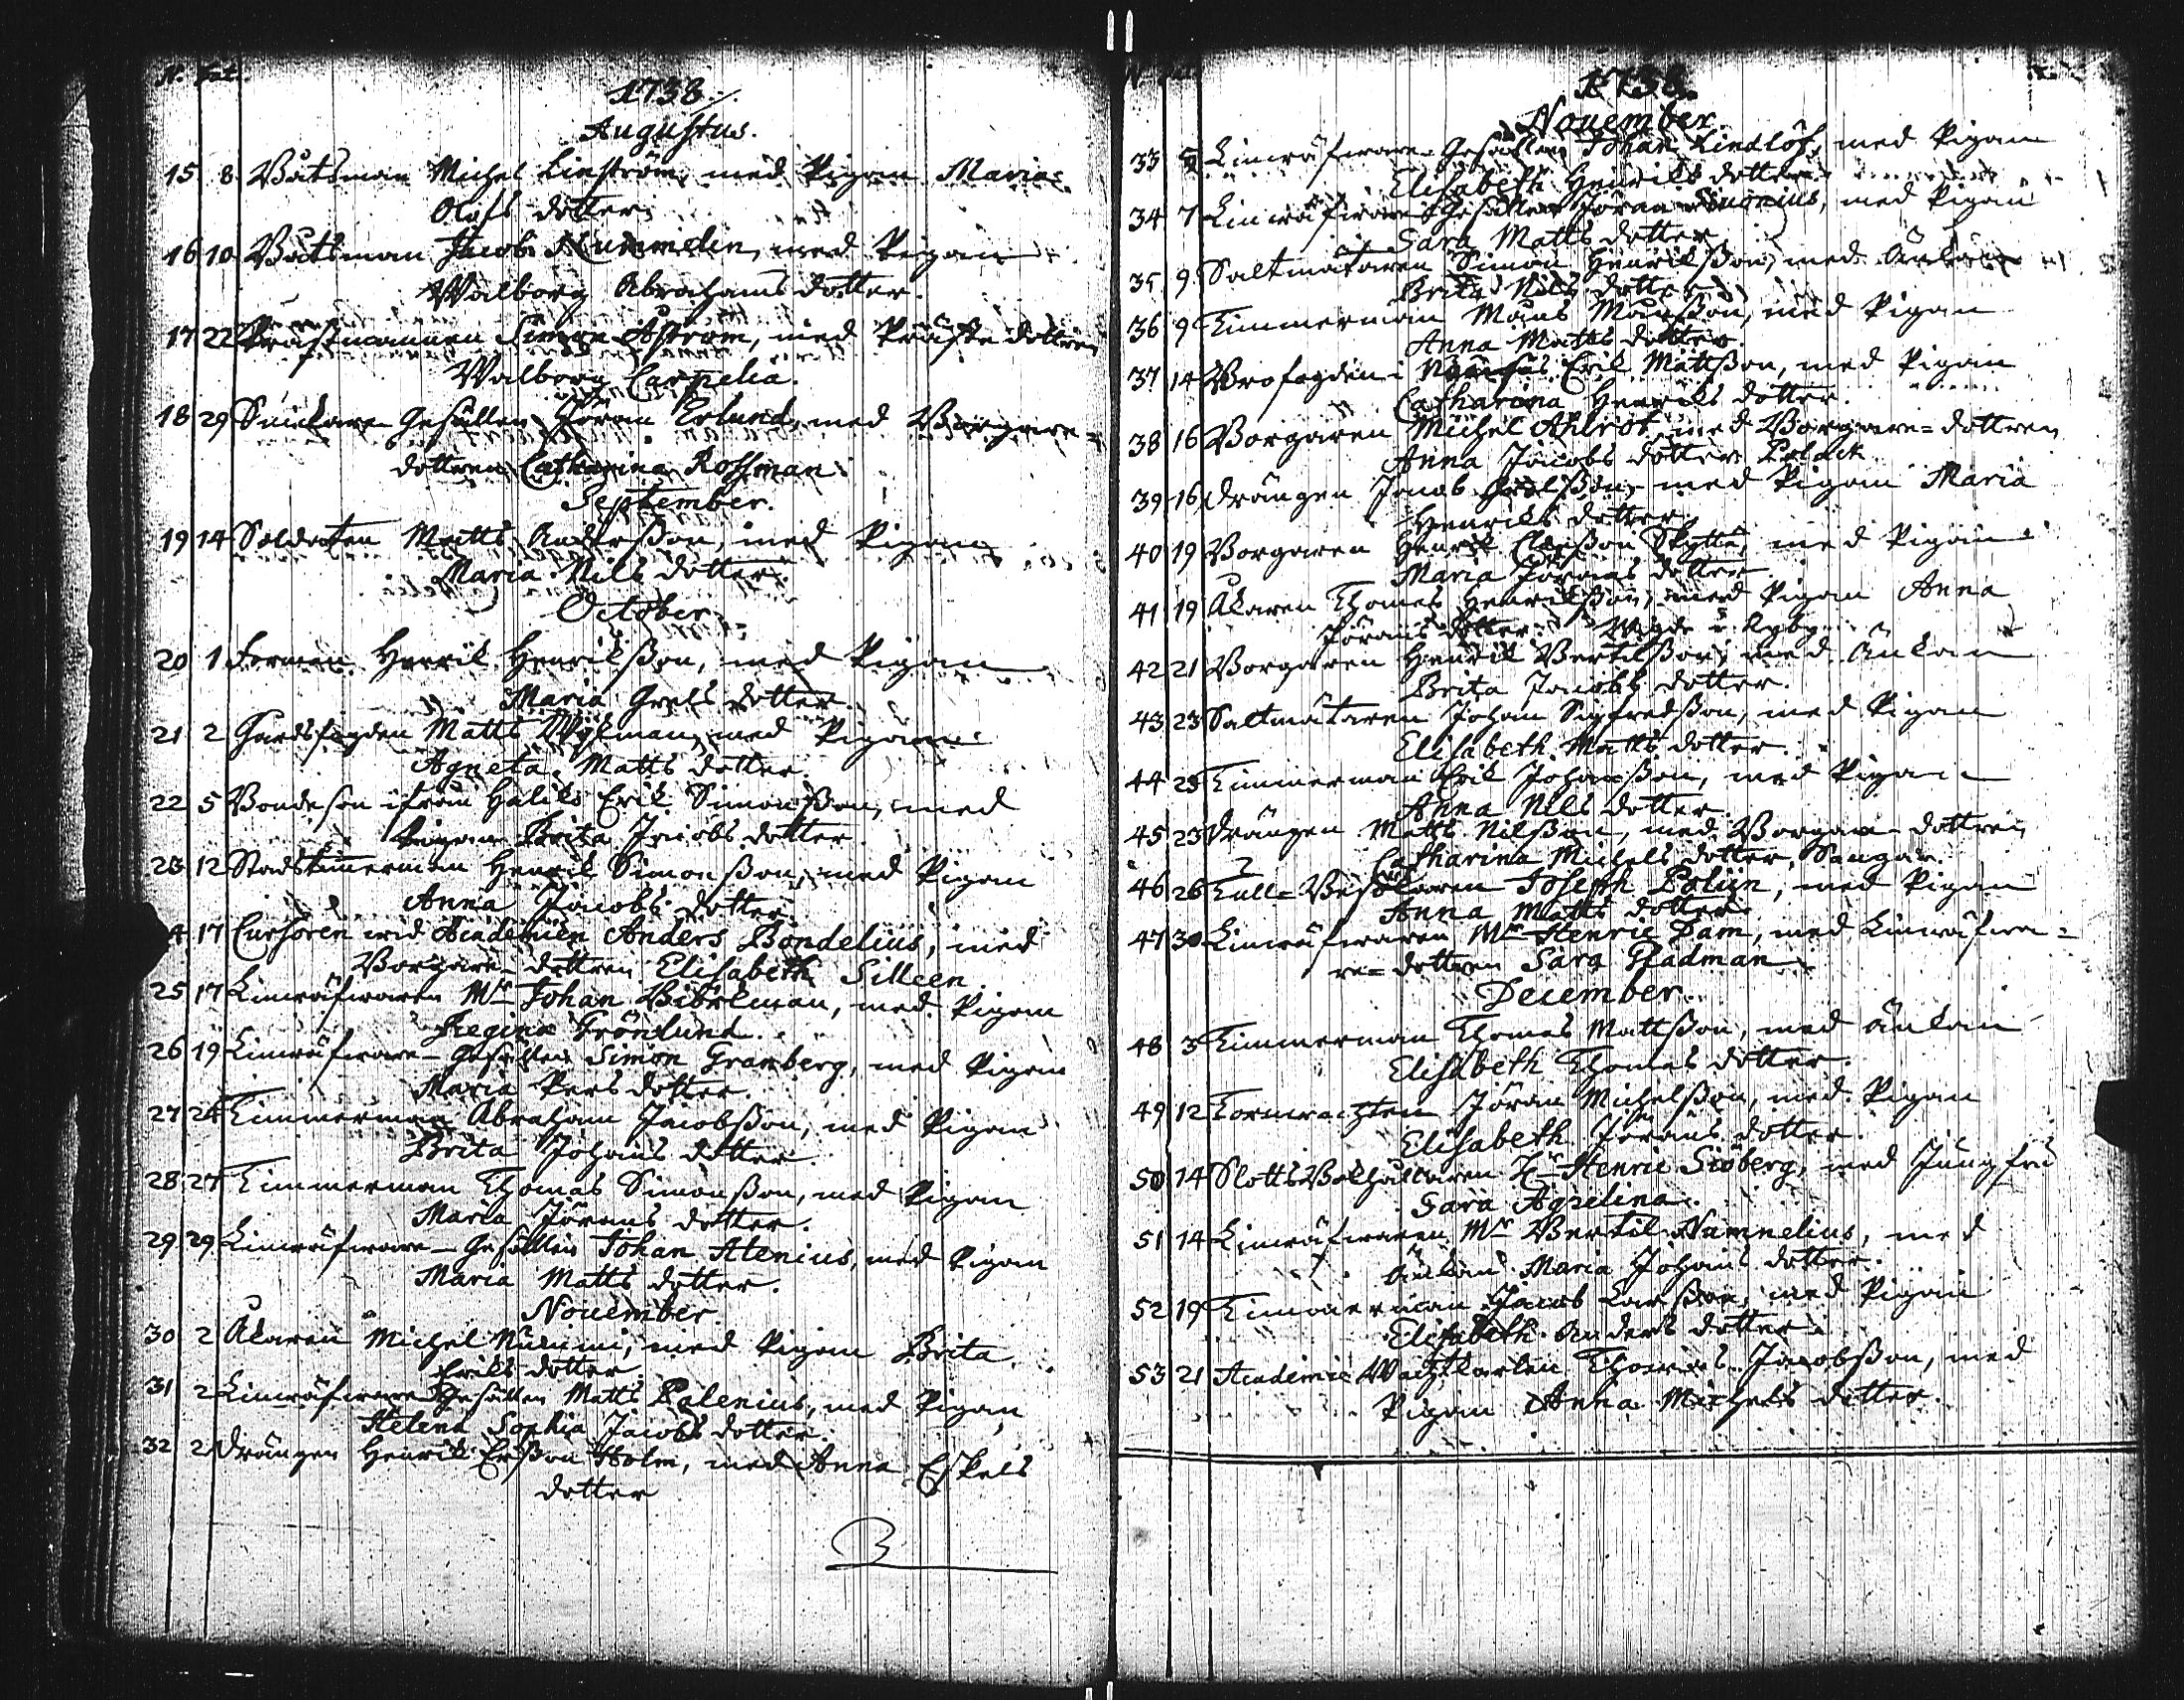 N. Dat.
1738.
Augustus.
15 8 Båtsman Michel Linström, med Pigan Maria
Olofs dotter.
16 10 Båtsman Jacob Nummelin, med Pigan
Walborg Abrahams dotter.
17 22 Prästmannen Simon Åström, med Präste dottren
Walborg Carpelia.
18 29 Snickare Gesällen Jöran Erlund, med Borgare-
dottren Catharina Rossman.
September.
19 14 Soldaten Matts Andersson, med Pigan
Maria Nils dotter.
October.
20 1 Forman Henrik Henriksson, med Pigan
Maria Grels dotter.
21 2 Gårdsfogden Matts Wikman, med Pigan
Agneta Matts dotter.
22 5 Bondeson ifrån Haliko Erik Simonsson, med
Pigan Brita Jacobs dotter.
23 12 Stadstimmerman Henrik Simonsson, med Pigan
Anna Jacobs dotter.
17 Cursoren wid Academien Anders Bondelius, med
Borgare-dottren Elisabeth Silleen.
25 17 Linwäfwaren Mr Johan Biörkman, med Pigan
Regina Grönlund.
26 19 Linwäfware-Gesällen Simon Granberg, med Pigan
Maria Pers dotter.
27 24 Timmerman Abraham Jacobsson, med Pigan
Brita Johans dotter.
28 27 Timmerman Thomas Simonsson, med Pigan
Maria Jörans dotter.
29 29 Linwäfware-Gesällen Johan Alenius, med Pigan
Maria Matts dotter.
November.
30 2 Åkaren Michel Nummi, med Pigan Brita
Eriks dotter.
31 2 Linwäfware Gesällen Matts Palenius, med Pigan
Helena Sophia Jacobs dotter.
32 2 Drängen Henrik Ersson Holm, med Anna Eskels
dotter
1738.
November.
33 5 Linwäfware-Gesällen Johan Lindlöf, med Pigan
Elisabeth Henriks dotter.
34 7 Linwäfware Gesällen Jöran Simonius, med Pigan
Sara Matts dotter.
35 9 Saltmätaren Simon Henriksson, med Änkan
Brita Nils dotter.
36 9 Timmerman Måns Månsson, med Pigan
Anna Matts dotter.
37 14 Brofogden i Erik Mattsson, med Pigan
Catharina Henriks dotter.
38 16 Borgaren Michel Ahlrot med Borgare-dottren
Anna Jacobs dotter Polack.
39 16 Drängen Jacob Grelsson, med Pigan Maria
Henriks dotter.
40 19 Borgaren Henrik Claesson Skytte, med Pigan
Maria Jörans dotter
41 19 Åkaren Thomas Henriksson, med Pigan Anna
Jörans dotter
42 21 Borgaren Henrik Bertilsson, med Änkan
Brita Jacobs dotter.
43 23 Saltmätaren Johan Sigfredsson, med Pigan
Elisabeth Matts dotter.
44 23 Timmerman Erik Johansson, med Pigan
Anna Nils dotter
45 23 Drängen Matts Nilsson, med Borgare-dottren
Catharina Michels dotter
46 26 Tull-Besökaren Joseph Poliin, med Pigan
Anna Matts dotter.
47 30 Linwäfwaren Mr Henric Dam, med Linwäfwa-
re-dottren Sara Gladman.
December.
48 3 Timmerman Thomas Mattsson, med Änkan
Elisabeth Thomas dotter.
49 12 Tornwachten Jöran Michelsson, med Pigan
Elisabeth Jörans dotter.
50 14 Slotts Bokhållaren Hr Henric Siöberg, med Jungfru
Sara Agrelina.
51 14 Linwäfwaren Mr Bertil Nummelius, med
Änkan Maria Johans dotter.
52 19 Timmerman Jacob Larsson, med Pigan
Elisabeth Anders dotter.
53 21 Academie Wachtkarlen Thomas Jacobsson, med
Pigan Anna Michels dotter.